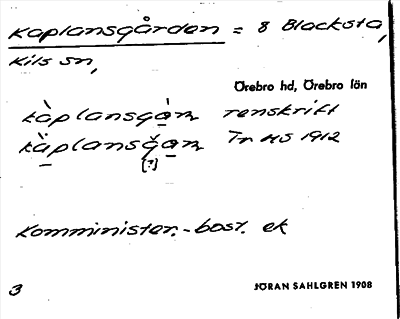 Kaplansgården = 8 Blacksta,
Kils sn,
Örebro hd, Örebro län
kàplansgàn renskrift
Fr HS 1912
[?]
Komminister.-bost. ek
3
JÖRAN SAHLGREN 1908